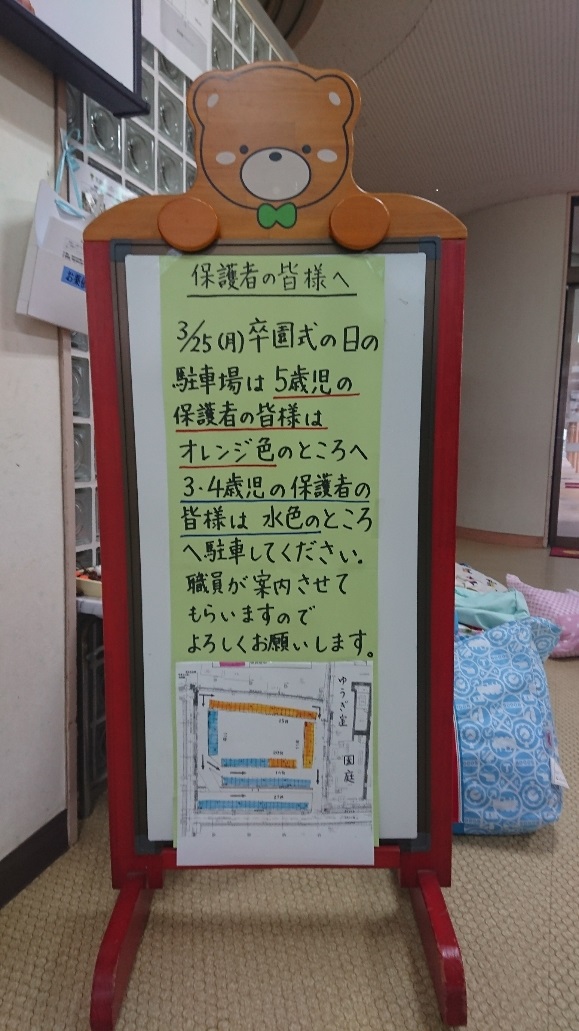 保護者の皆様へ
3/25(月)卒園式の日の
駐車場は5歳児の
保護者の皆様は
オレンジ色のところへ
3・4歳児の保護者の
皆様は水色のところ
へ駐車してください。
職員が案内させて
もらいますので
よろしくお願いします。
ゆうぎ室
園庭